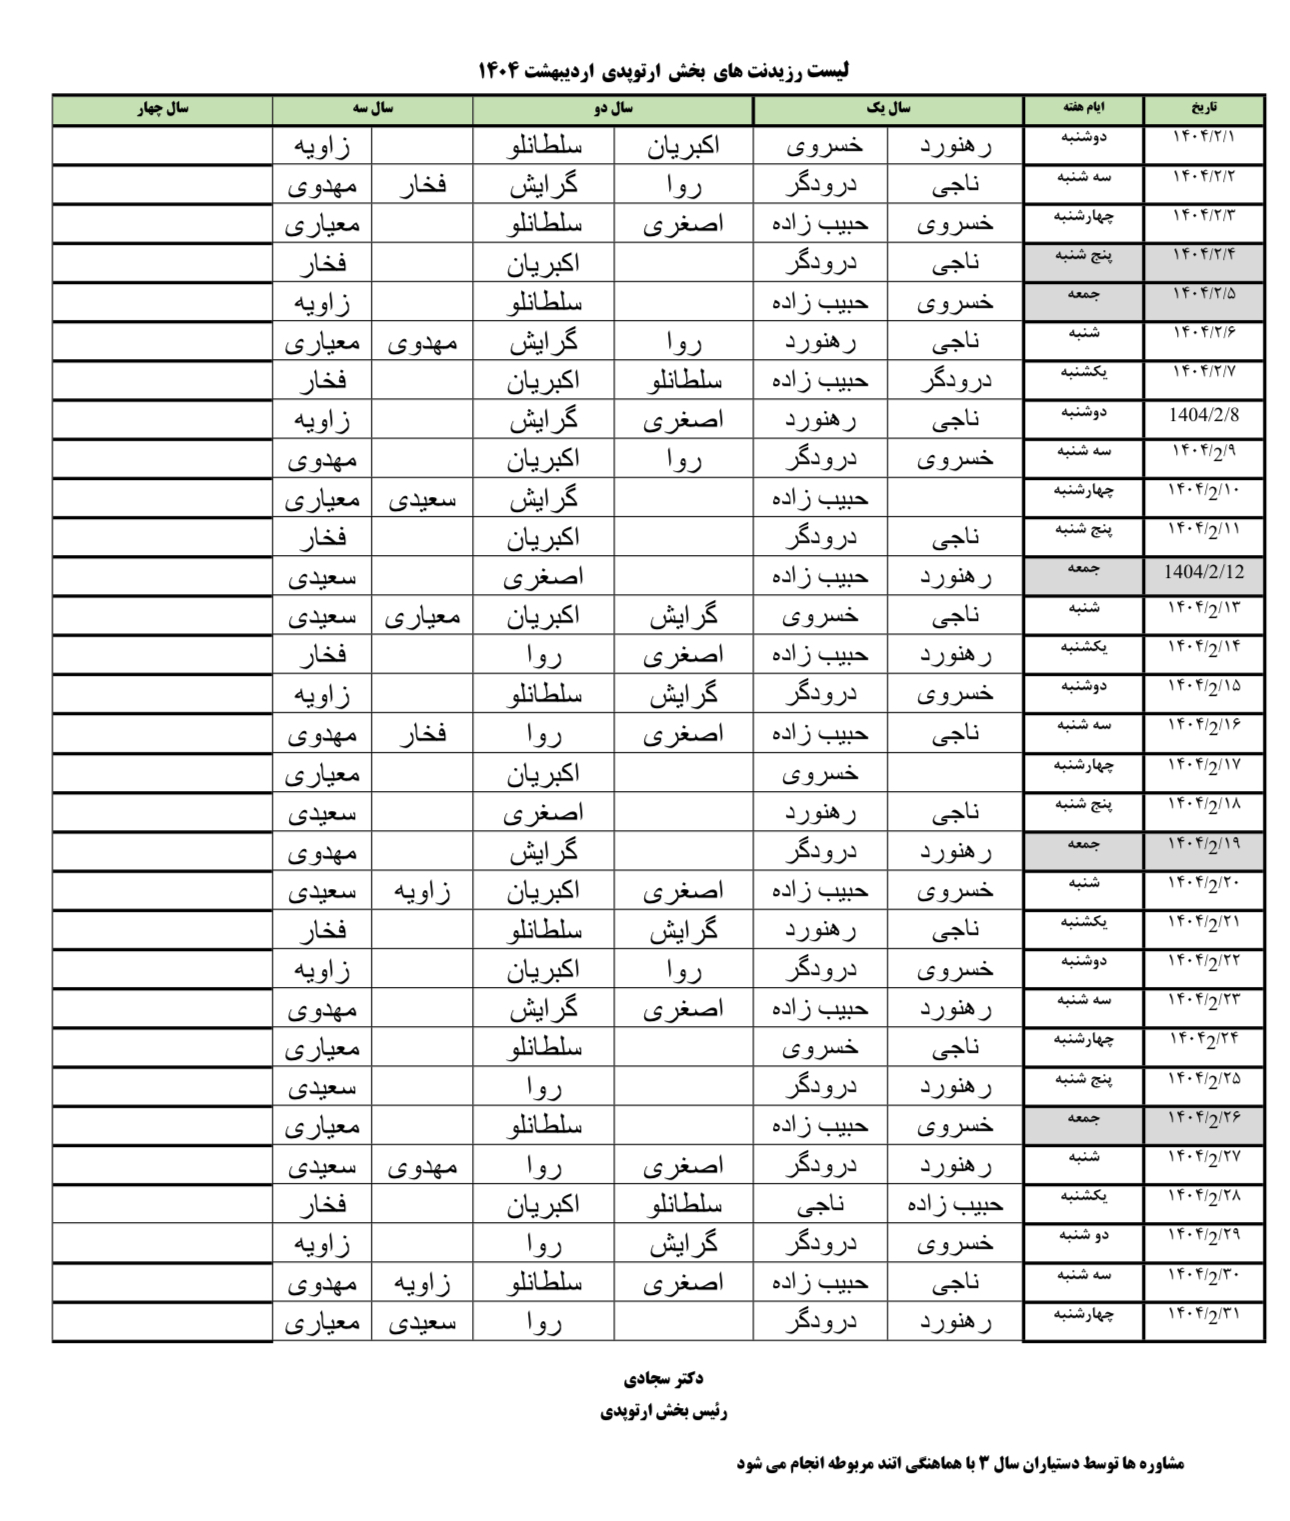 لیست رزیدنت های بخش ارتوپدی اردیبهشت ۱۴۰۴
تاریخ ایام هفته سال یک سال دو سال سه سال چهار
۱۴۰۴/۲/۱ دوشنبه رهنورد خسروی اکبریان سلطانلو زاویه
۱۴۰۴/۲/۲ سه شنبه ناجی درودگر روا گرایش فخار مهدوی
۱۴۰۴/۲/۳ چهارشنبه خسروی حبیب زاده اصغری سلطانلو معیاری
۱۴۰۴/۲/۴ پنج شنبه ناجی درودگر اکبریان فخار
۱۴۰۴/۲/۵ جمعه خسروی حبیب زاده سلطانلو زاویه
۱۴۰۴/۲/۶ شنبه ناجی رهنورد روا گرایش مهدوی معیاری
۱۴۰۴/۲/۷ یکشنبه درودگر حبیب زاده سلطانلو اکبریان فخار
1404/2/8 دوشنبه ناجی رهنورد اصغری گرایش زاویه
۱۴۰۴/2/۹ سه شنبه خسروی درودگر روا اکبریان مهدوی
۱۴۰۴/2/۱۰ چهارشنبه حبیب زاده گرایش سعیدی معیاری
۱۴۰۴/2/۱۱ پنج شنبه ناجی درودگر اکبریان فخار
1404/2/12 جمعه رهنورد حبیب زاده اصغری سعیدی
۱۴۰۴/2/۱۳ شنبه ناجی خسروی گرایش اکبریان معیاری سعیدی
۱۴۰۴/2/۱۴ یکشنبه رهنورد حبیب زاده اصغری روا فخار
۱۴۰۴/2/۱۵ دوشنبه خسروی درودگر گرایش سلطانلو زاویه
۱۴۰۴/2/۱۶ سه شنبه ناجی حبیب زاده اصغری روا فخار مهدوی
۱۴۰۴/2/۱۷ چهارشنبه خسروی اکبریان معیاری
۱۴۰۴/2/۱۸ پنج شنبه ناجی رهنورد اصغری سعیدی
۱۴۰۴/2/۱۹ جمعه رهنورد درودگر گرایش مهدوی
۱۴۰۴/2/۲۰ شنبه خسروی حبیب زاده اصغری اکبریان زاویه سعیدی
۱۴۰۴/2/۲۱ یکشنبه ناجی رهنورد گرایش سلطانلو فخار
۱۴۰۴/2/۲۲ دوشنبه خسروی درودگر روا اکبریان زاویه
۱۴۰۴/2/۲۳ سه شنبه رهنورد حبیب زاده اصغری گرایش مهدوی
۱۴۰۴2/۲۴ چهارشنبه ناجی خسروی سلطانلو معیاری
۱۴۰۴/2/۲۵ پنج شنبه رهنورد درودگر روا سعیدی
۱۴۰۴/2/۲۶ جمعه خسروی حبیب زاده سلطانلو معیاری
۱۴۰۴/2/۲۷ شنبه رهنورد درودگر اصغری روا مهدوی سعیدی
۱۴۰۴/2/۲۸ یکشنبه حبیب زاده ناجی سلطانلو اکبریان فخار
۱۴۰۴/2/۲۹ دو شنبه خسروی درودگر گرایش روا زاویه
۱۴۰۴/2/۳۰ سه شنبه ناجی حبیب زاده اصغری سلطانلو زاویه مهدوی
۱۴۰۴/2/۳۱ چهارشنبه رهنورد درودگر روا سعیدی معیاری
دکتر سجادی
رئیس بخش ارتوپدی
مشاوره ها توسط دستیاران سال ۳ با هماهنگی اتند مربوطه انجام می شود